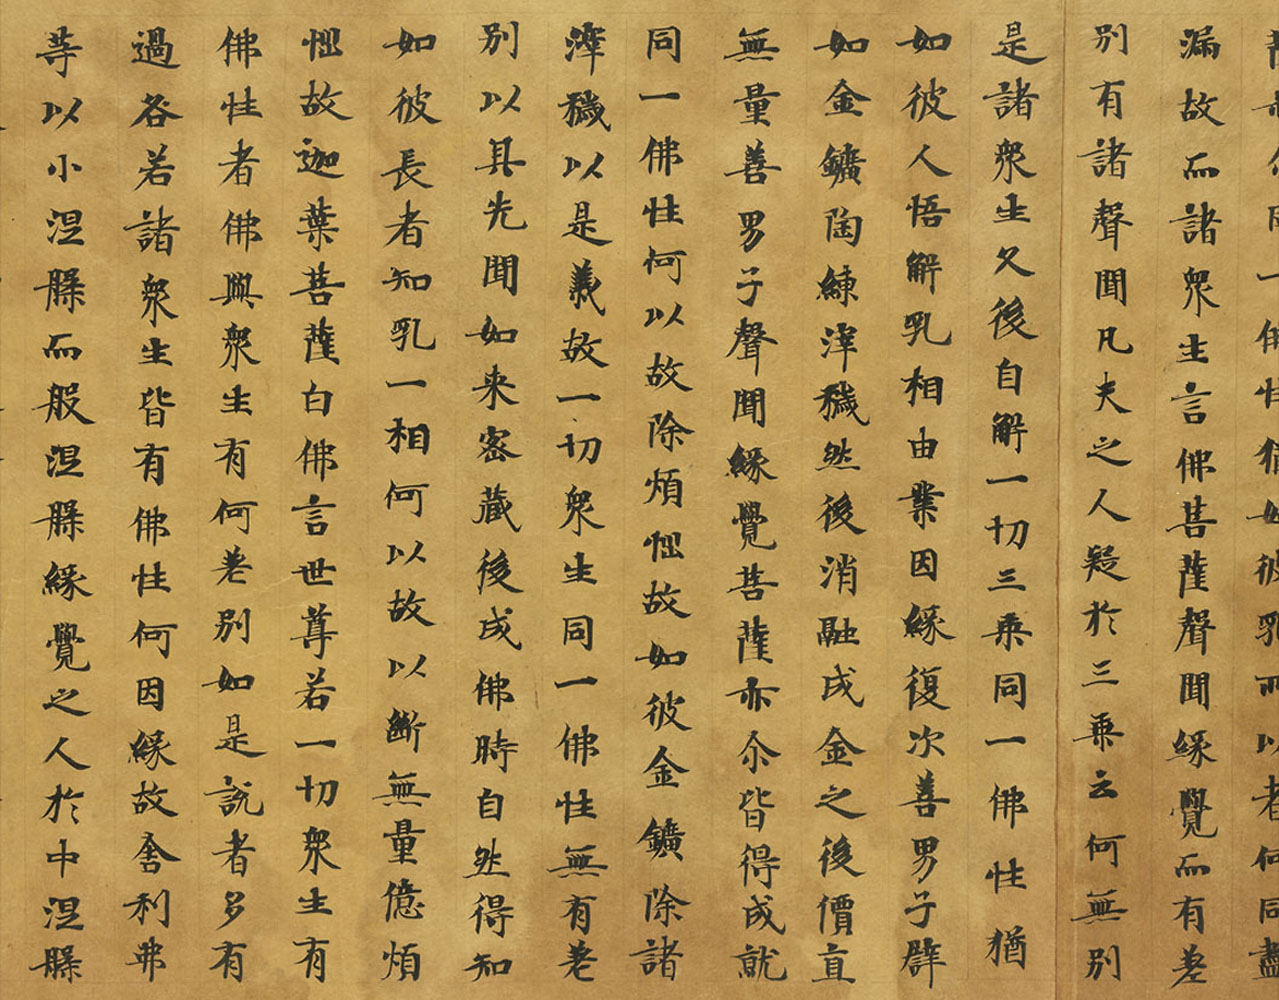 一佛性猶如彼乳以者何同盡
漏故而諸眾生言佛菩薩聲聞緣覺而有差
別有諸聲聞凡夫之人疑於三乘云何無別
是諸眾生久後自解一切三乘同一佛性猶
如彼人悟解乳相由業因緣復次善男子辟
如金鑛陶練滓穢然後消融成金之後價直
無量善男子聲聞緣覺菩薩亦尒皆得成就
同一佛性何以故除煩惱故如彼金鑛除諸
滓穢以是義故一切眾生同一佛性無有差
別以其先聞如來密藏後成佛時自然得知
如彼長者知乳一相何以故以斷無量億煩
惱故迦葉菩薩白佛言世尊若一切眾生有
佛性者佛與眾生有何差別如是說者多有
過咎若諸眾生皆有佛性何因緣故舍利弗
等以小涅槃而般涅槃緣覺之人於中涅槃